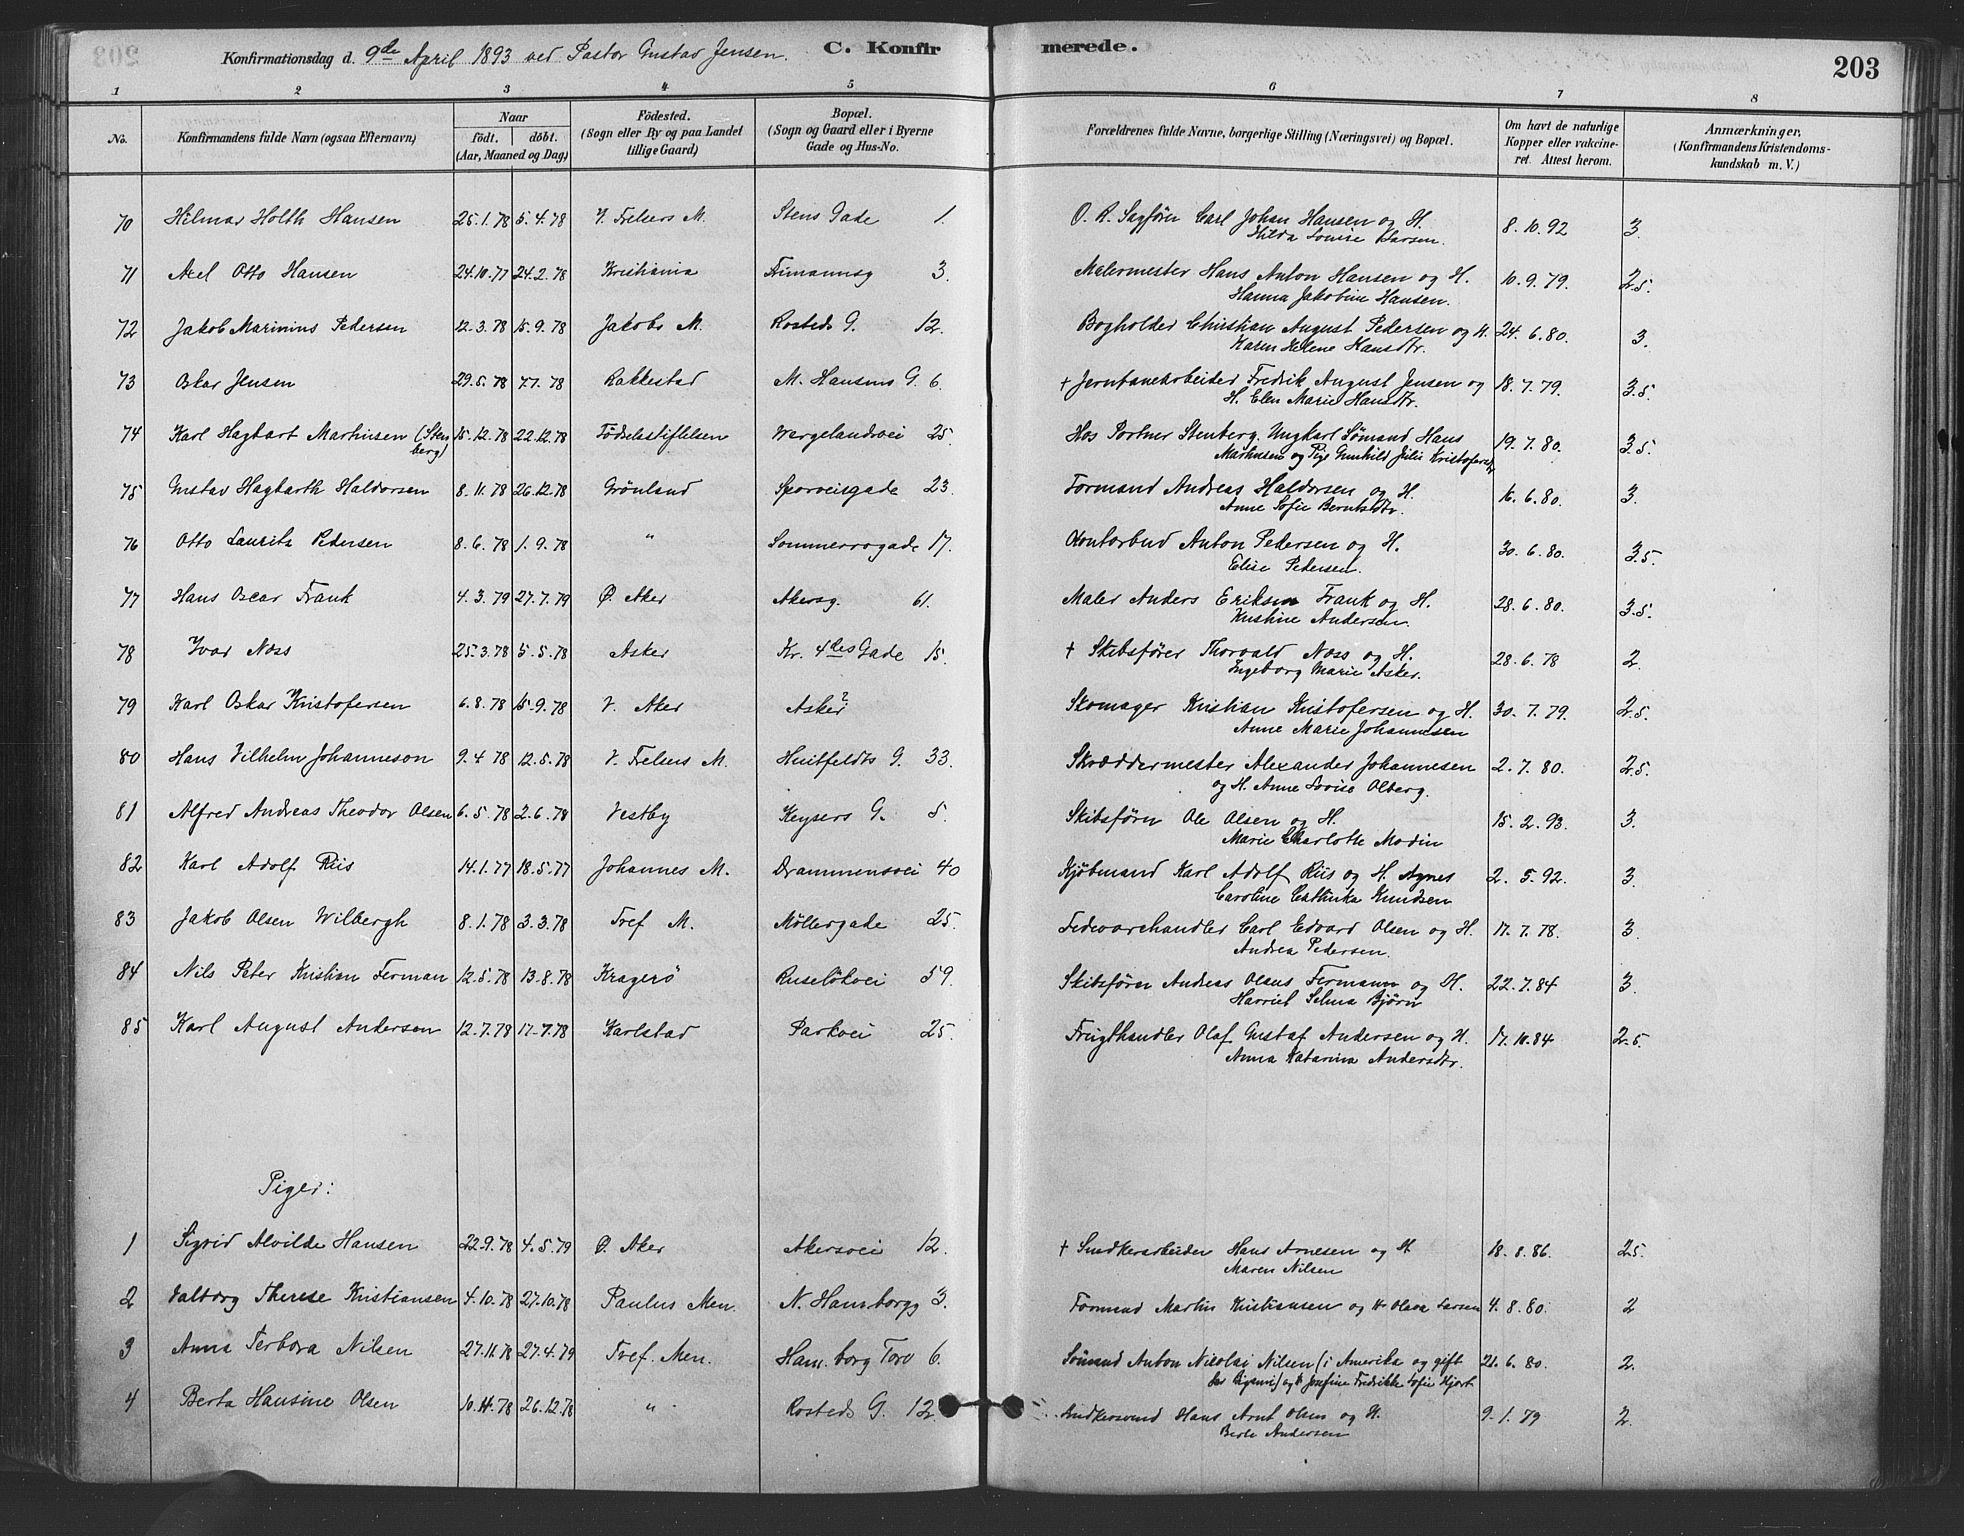 Konfirmationsdag d. 9de April 1893 ved Pastor Gustav Jensen. C. Konfirmerede. 203
1 2 3 4 5 6 7 8
No. Konfirmandens fulde Navn (ogsaa Efternavn) Naar födt. döbt. (Aar, Maaned og Dag) Födested. (Sogn eller By og paa Landet tillige Gaard) Bopæl. (Sogn og Gaard eller i Byerne Gade og Hus-No. Forældrenes fulde Navne, borgerlige Stilling (Næringsvei) og Bopæl. Om havt de naturlige Kopper eller vakcineret. Attest herom. Anmærkninger. (Konfirmandens Kristendomskundskab m. V.)
70 Hilmar Holth Hansen 25.1.78 5.4.78 V. Frelsers M. Stens Gade 1. O. R. Sagförer Carl Johan Hansen og H. 8.10.92 3.
Hilda Louise Larsen.
71 Axel Otto Hansen 24.10.77 24.2.78 Kristiania 3. Malermester Hans Anton Hansen og H. 10.9.79. 2.5.
Hanna Jakobine Hansen.
72 Jakob Marinius Pedersen 12.3.78 15.9.78 Jakobs M. Rosteds G. 12. Bogholder Christian August Pedersen og H. 24.6.80. 3.
Karen Helene Hansdtr.
73 Oskar Jensen 29.5.78 7.7.78 Rakkestad M. Hansens G. 6. † Jernbanearbeider Fredrik August Jensen og 18.7.79. 3.5.
H. Elen Marie Hansdtr.
74 Karl Hagbart Martinsen (Stenberg) 15.12.78 22.12.78 Födselsstiftelsen Wergelandsvei 25. Hos Portner Stenberg. Ungkarl Sömand Hans 19.7.80. 3.5.
Martinsen og Pige Gunhild Julie Kristofersdtr
75 Gustav Hagbarth Haldorsen 8.11.78 26.12.78 Grönland Sporveisgade 23. Formand Andreas Haldorsen og H. 16.6.80. 3.
Anne Sofie Berntsdtr.
76 Otto Lauritz Pedersen 8.6.78 1.9.78 " Sommerrogade 17. Kontorbud Anton Pedersen og H. 30.6.80. 3.5.
Elise Pedersen.
77 Hans Oscar Frank 4.3.79 27.7.79 Ø. Aker Akersg. 61. Maler Anders Eriksen Frank og H. 28.6.80. 3.5.
Kristine Andersen.
78 Ivar Næss 25.3.78 5.5.78 Asker Kr. 4des Gade 15. † Skibsförer Thorvald Næss og H. 28.6.78 2.
Ingeborg Marie Asker.
79 Karl Oskar Kristofersen 6.8.78 15.9.78 V. Aker Asker? Skomager Kristian Kristofersen og H. 30.7.79. 2.5.
Anne Marie Johannesen
80 Hans Vilhelm Johanneson 9.4.78 12.5.78 V. Frelsers M. Huitfeldts G. 33. Skræddermester Alexander Johannesen 2.7.80. 2.5.
og H. Anne Lovise Olberg.
81 Alfred Andreas Theodor Olsen 6.5.78 2.6.78 Vestby Keysers G. 5. Skibsförer Ole Olsen og H. 15.2.93. 3.
Marie Charlotte Modin
82 Karl Adolf Riis 14.1.77 18.5.77 Johannes M. Drammensvei 40 Kjöbmand Karl Adolf Riis og H. Agnes 2.5.92. 3.
Caroline Cathinka Knudsen
83 Jakob Olsen Wilbergh 8.1.78 3.3.78 Tref M. Möllergade 25. Fedevarehandler Carl Edvard Olsen og H. 17.7.78. 3.
Andrea Pedersen.
84 Nils Peter Kristian Ferman 12.5.78 13.8.78 Kragerö Ruselökvei 59. Skibsförer Andreas Olaus Fermann og H. 22.7.84 3.
Harriet Selma Björn
85 Karl August Andersen 12.7.78 17.7.78 Karlstad Parkvei 25. Frugthandler Olaf Gustaf Andersen og H. 17.10.84 2.5.
Anna Katarina Andersdtr.
Piger:
1 Sigrid Alvilde Hansen 22.9.78 4.5.79 Ø. Aker Akersvei 12. † Snedkerarbeider Hans Arnesen og H. 18.8.86. 2.5.
Maren Nilsen
2 Valborg Therese Kristiansen 4.10.78 27.10.78 Paulus Men. N. Hamborgg 3. Formand Martin Kristiansen og H. Olava Larsen 4.8.80. 2
3 Anna Nilsen 27.11.78 27.4.79 Tref. Men. Hamborg Torv 6. Sömand Anton Nicolai Nilsen (i Amerika og gift 21.6.80. 2.
og H. Josefine Fredrikke Sofie Hjort
4 Berta Hansine Olsen 10.11.78 26.12.78 " Rosteds G. 12. Snedkersvend Hans Arnt Olsen og H. 9.1.79 2.
Berte Andersen